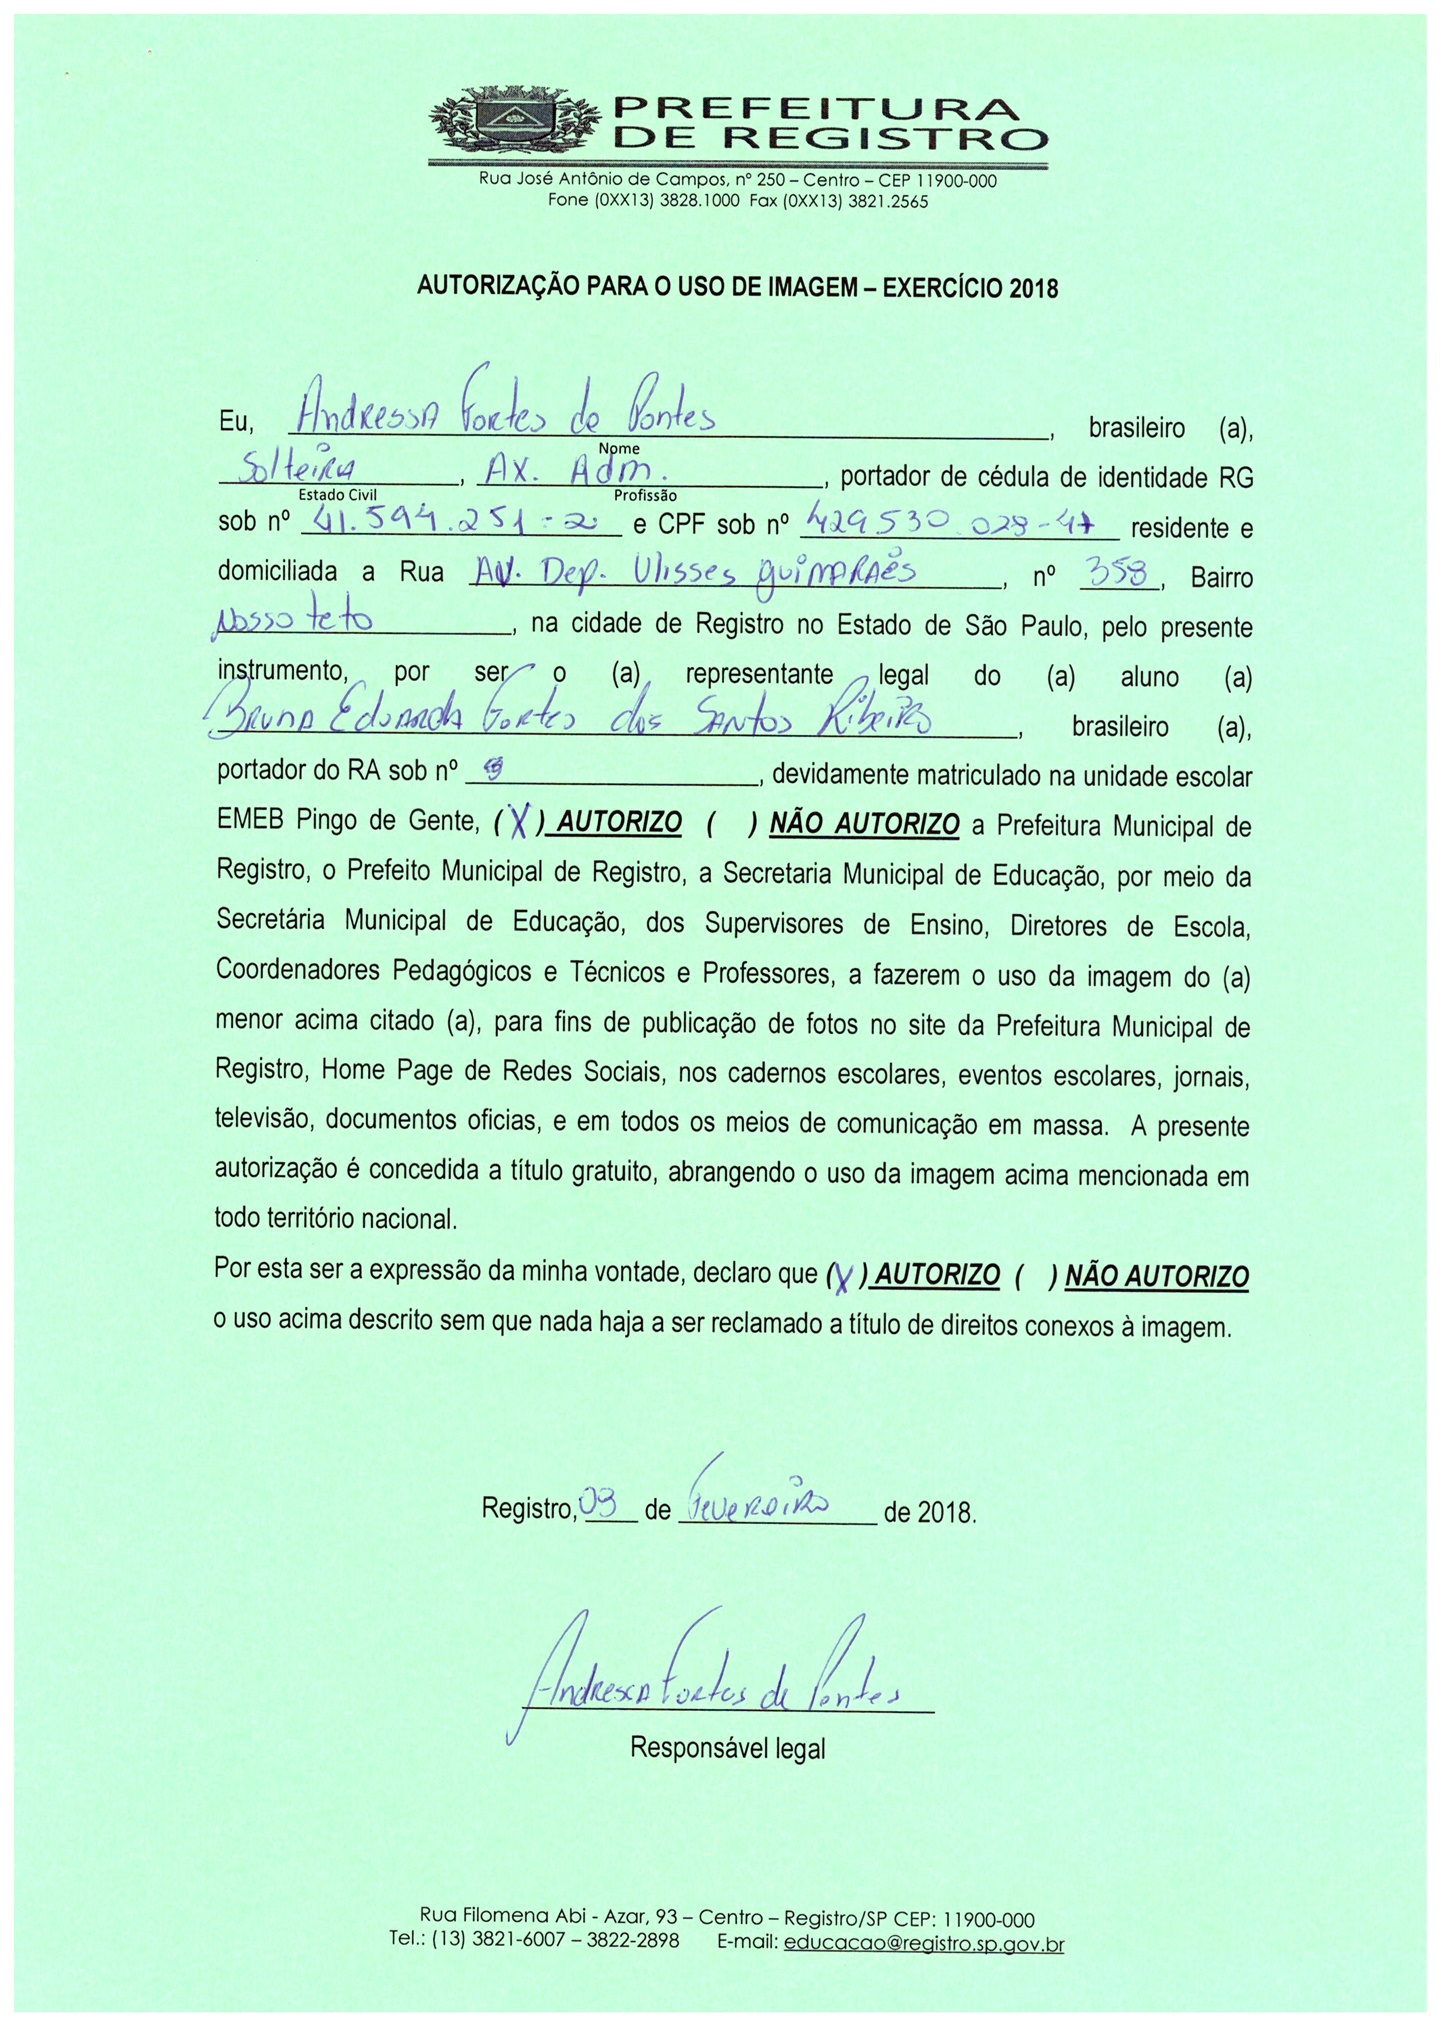 PREFEITURA
DE REGISTRO
Rua José Antônio de Campos, nº 250 – Centro – CEP 11900-000
Fone (0XX13) 3828.1000 Fax (0XX13) 3821.2565
AUTORIZAÇÃO PARA O USO DE IMAGEM – EXERCÍCIO 2018
Eu, Andressa Fortes de Pontes, brasileiro (a),
Nome
Solteira, Ax. Adm., portador de cédula de identidade RG
Estado Civil Profissão
sob nº 41.594.251-2 e CPF sob nº 429530.028-47 residente e
domiciliada a Rua AV. Dep. Ulisses guimarães, nº 358, Bairro
Nosso teto, na cidade de Registro no Estado de São Paulo, pelo presente
instrumento, por ser o (a) representante legal do (a) aluno (a)
Bruna Eduarda Fortes dos Santos Ribeiro, brasileiro (a),
portador do RA sob nº , devidamente matriculado na unidade escolar
EMEB Pingo de Gente, (X) AUTORIZO ( ) NÃO AUTORIZO a Prefeitura Municipal de
Registro, o Prefeito Municipal de Registro, a Secretaria Municipal de Educação, por meio da
Secretária Municipal de Educação, dos Supervisores de Ensino, Diretores de Escola,
Coordenadores Pedagógicos e Técnicos e Professores, a fazerem o uso da imagem do (a)
menor acima citado (a), para fins de publicação de fotos no site da Prefeitura Municipal de
Registro, Home Page de Redes Sociais, nos cadernos escolares, eventos escolares, jornais,
televisão, documentos oficias, e em todos os meios de comunicação em massa. A presente
autorização é concedida a título gratuito, abrangendo o uso da imagem acima mencionada em
todo território nacional.
Por esta ser a expressão da minha vontade, declaro que (X) AUTORIZO ( ) NÃO AUTORIZO
o uso acima descrito sem que nada haja a ser reclamado a título de direitos conexos à imagem.
Registro, 09 de Fevereiro de 2018.
Andressa Fortes de Pontes
Responsável legal
Rua Filomena Abi - Azar, 93 – Centro – Registro/SP CEP: 11900-000
Tel.: (13) 3821-6007 – 3822-2898 E-mail: educacao@registro.sp.gov.br